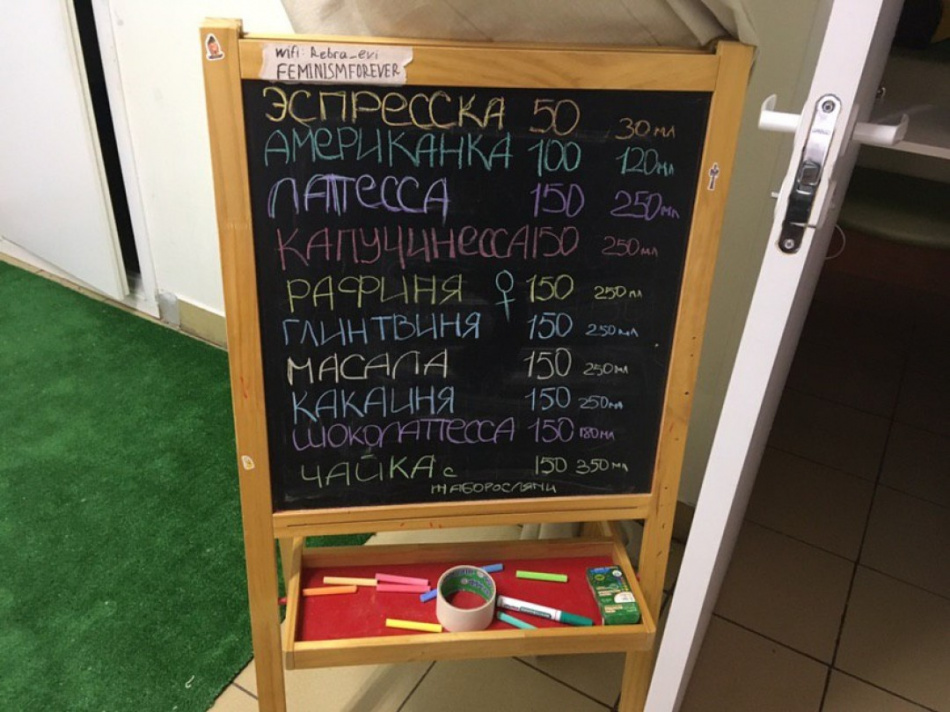 Wifi: Rebra_evi
FEMINISMFOREVER
ЭСПРЕССКА 50 30 мл
АМЕРИКАНКА 100 120 мл
ЛАТТЕССА 150 250 мл
КАПУЧИНЕССА 150 250 мл
РАФИНЯ ♀ 150 250 мл
ГЛИНТВИНЯ 150 250 мл
МАСАЛА 150 250 мл
КАКАИНЯ 150 250 мл
ШОКОЛАТТЕССА 150 180 мл
ЧАЙКА с 150 350 мл